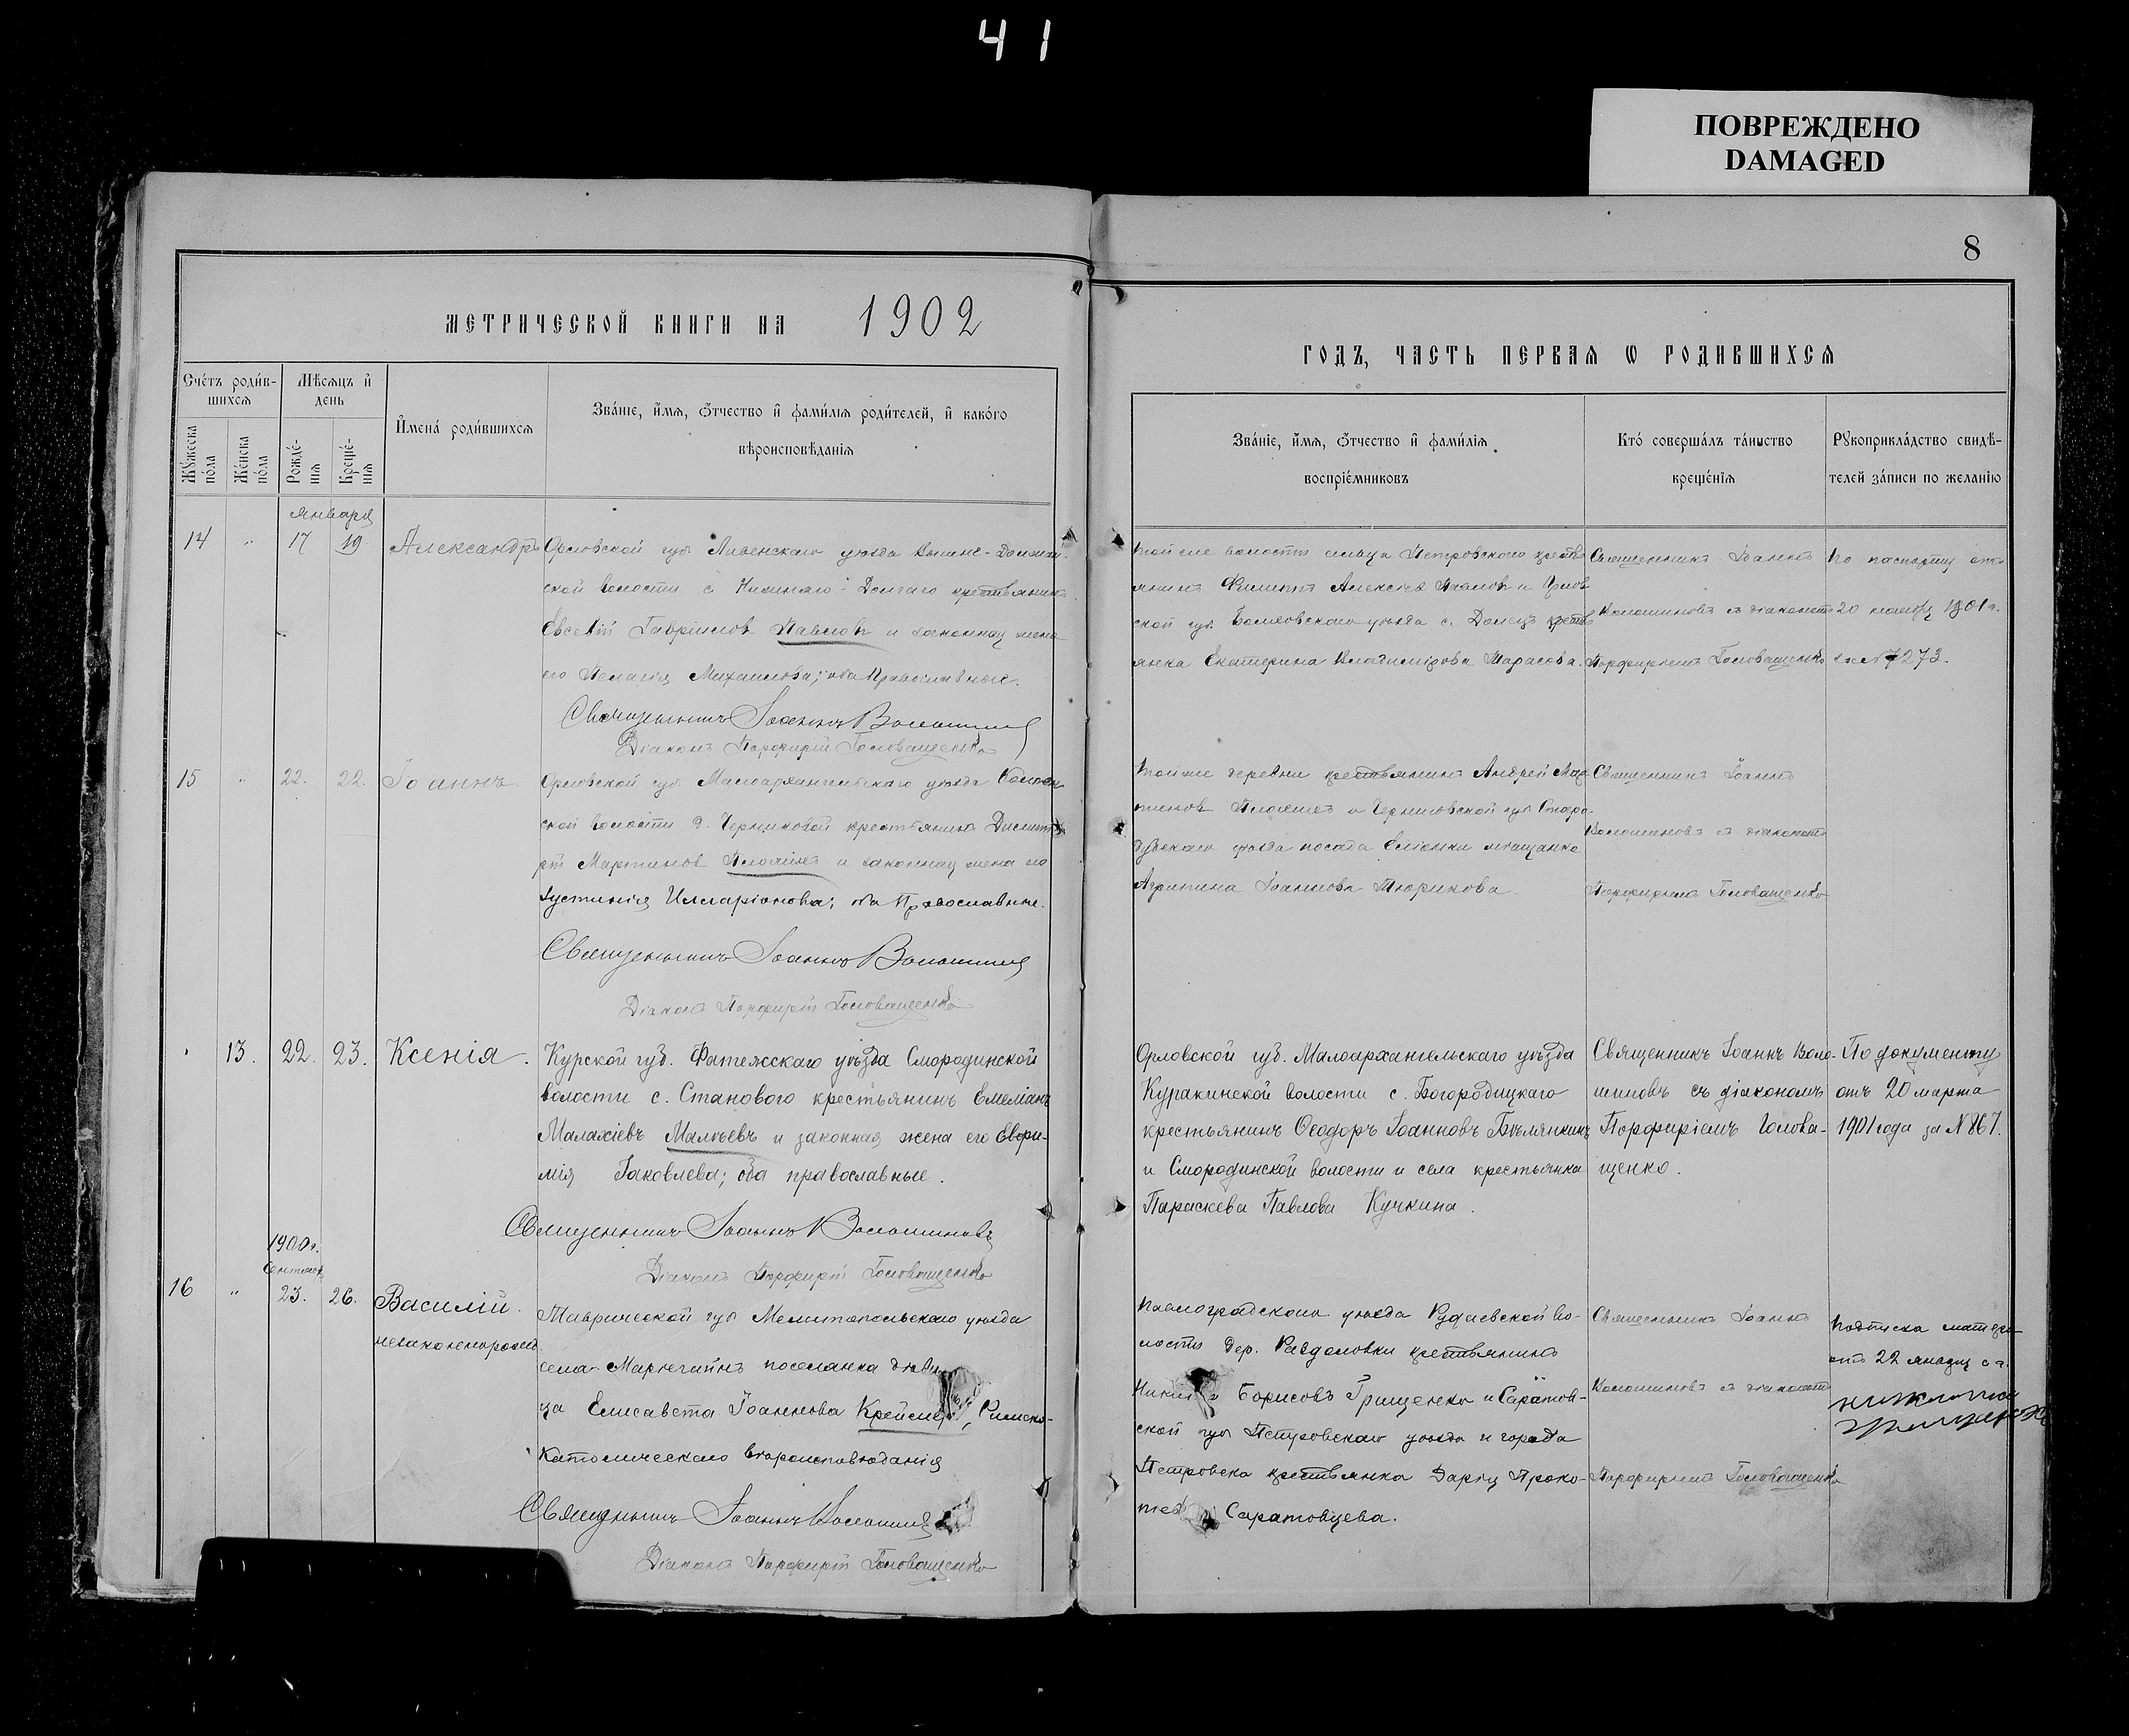 41
ПОВРЕЖДЕНО
DAMAGED
8
МЕТРИЧЕСКОЙ КНИГИ НА 1902
ГОДЪ, ЧАСТЬ ПЕРВАЯ Ѡ РОДИВШИХСЯ
Счетъ родив-
шихся
Мѣсяцъ и
день
Мужеска
пола
Женска
пола
Рожде-
нія
Креще-
нія
Имена родившихся
Званіе, имя, отчество и фамилія родителей, и какого
вѣроисповѣданія
Званіе, имя, отчество и фамилія
воспріемниковъ
Кто совершалъ таинство
крещенія
Рукоприкладство свидѣ-
телей записи по желанію
Января
14 " 17 19 Александръ
Орловской губ. Ливенскаго уѣзда
ской волости с. Нижняго-Долгаго крестьянинъ
Евсевій Гавріиловъ Павловъ и законная жена
его Пелагія Михаилова; оба Православные.
Священникъ Іоаннъ Волошиновъ
Діаконъ Порфирій Головащенко
той же волости сельца Петровскаго крестья
янинъ Филиппъ Алексіевъ Павловъ и Орлов
ской губ. Болховскаго уѣзда с. Долецъ крестья
янка Екатерина Владимірова Тарасова.
Священникъ Іоаннъ
Волошиновъ съ діакономъ
Порфиріемъ Головащенко
По паспорту отъ
20 1901 г.
за № 7273.
15 " 22. 22. Іоаннъ.
Орловской губ. Малоархангельскаго уѣзда
ской волости д. Черниковой крестьянинъ Дими
рій Мартиновъ и законная жена его
Іустинія Илларіонова; оба Православные.
Священникъ Іоаннъ Волошиновъ
Діаконъ Порфирій Головащенко
той же деревни крестьянинъ Андрей Мар
тиновъ и Черниговской губ. Старо-
дубскаго уѣзда посада Еліонки мѣщанка
Агрипина Іоаннова Тюрикова.
Священникъ Іоаннъ
Волошиновъ съ діакономъ
Порфиріемъ Головащенко
13. 22. 23. Ксенія.
Курской губ. Фатежскаго уѣзда Смородинской
волости с. Станового крестьянинъ Емеліанъ
Малахіевъ Малѣевъ и законная жена его Евфи-
мія Іаковлева; оба православные.
Священникъ Іоаннъ Волошиновъ
Діаконъ Порфирій Головащенко
Орловской губ. Малоархангельскаго уѣзда
Куракинской волости с. Богородицкаго
крестьянинъ Ѳеодоръ Іоанновъ Бѣлянкинъ
и Смородинской волости и села крестьянка
Параскева Павлова Кучкина.
Священникъ Іоаннъ Воло-
шиновъ съ діакономъ
Порфиріемъ Голова-
щенко.
По документу
отъ 20 марта
1901 года за № 867.
1900 г.
Сентября
16 " 23. 26. Василій.
незаконнорожд.
Таврической губ. Мелитопольскаго уѣзда
села поселянка дѣви
ца Елисавета Іоаннова Крейсмеръ, Римско-
Католическаго вѣроисповѣданія
Священникъ Іоаннъ Волошиновъ
Діаконъ Порфирій Головащенко
Павлоградскаго уѣзда во-
лости дер. Раздоловки крестьянинъ
Борисовъ Грищенко и Саратов-
ской губ. Петровскаго уѣзда и города
Петровска крестьянка Дарья Проко-
Саратовцева.
Священникъ Іоаннъ
Волошиновъ съ діакономъ
Порфиріемъ Головащенко
Подписка матери
отъ 22 января с. г.